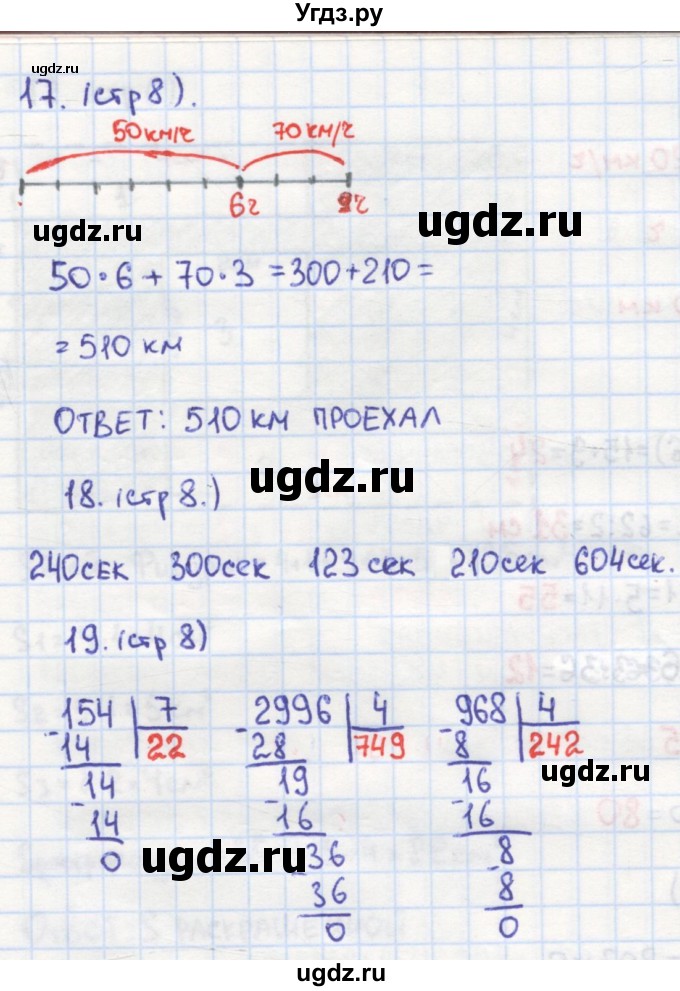 Угдз.ру
ugdz.ru
17. (стр 8).
50км/ч 70км/ч
6ч 9ч
ugdz.ru ugdz.ru
50·6 + 70·3 = 300+210 =
= 510 км
ОТВЕТ: 510 км ПРОЕХАЛ
ugdz.ru
18. (стр 8.)
240сек 300сек 123 сек 210сек 604сек.
19. (стр 8)
154 7 2996 4 968 4
-14 22 -28 749 -8 242
ugdz.ru
14 19 16
-14 -16 -16
0 -36 8
ugdz.ru
36 -8
0 0
ugdz.ru